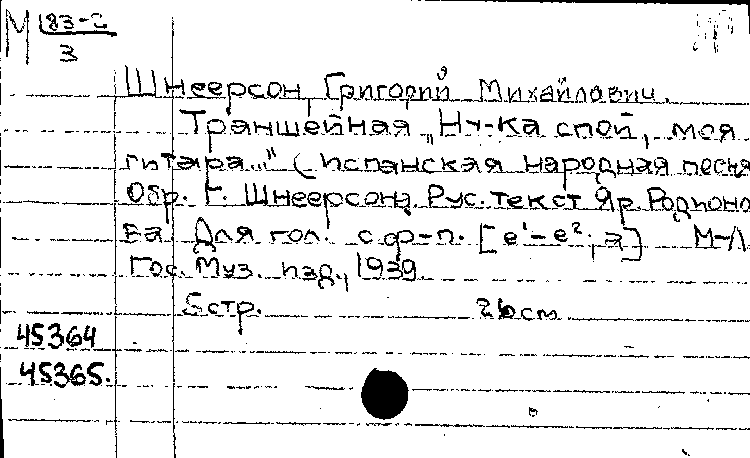 М 183-2
3
Шнеерсон, Григорий Михайлович.
Траншейная „Ну-ка спой, моя
гитара..." (Испанская народная песня
Обр. Г. Шнеерсона. Рус. текст Яр. Родионо
ва. Для гол. с ф-п. [e¹-e²; a] М-Л
Гос. Муз. изд., 1939.
5 стр. 26 см
45364
45365.